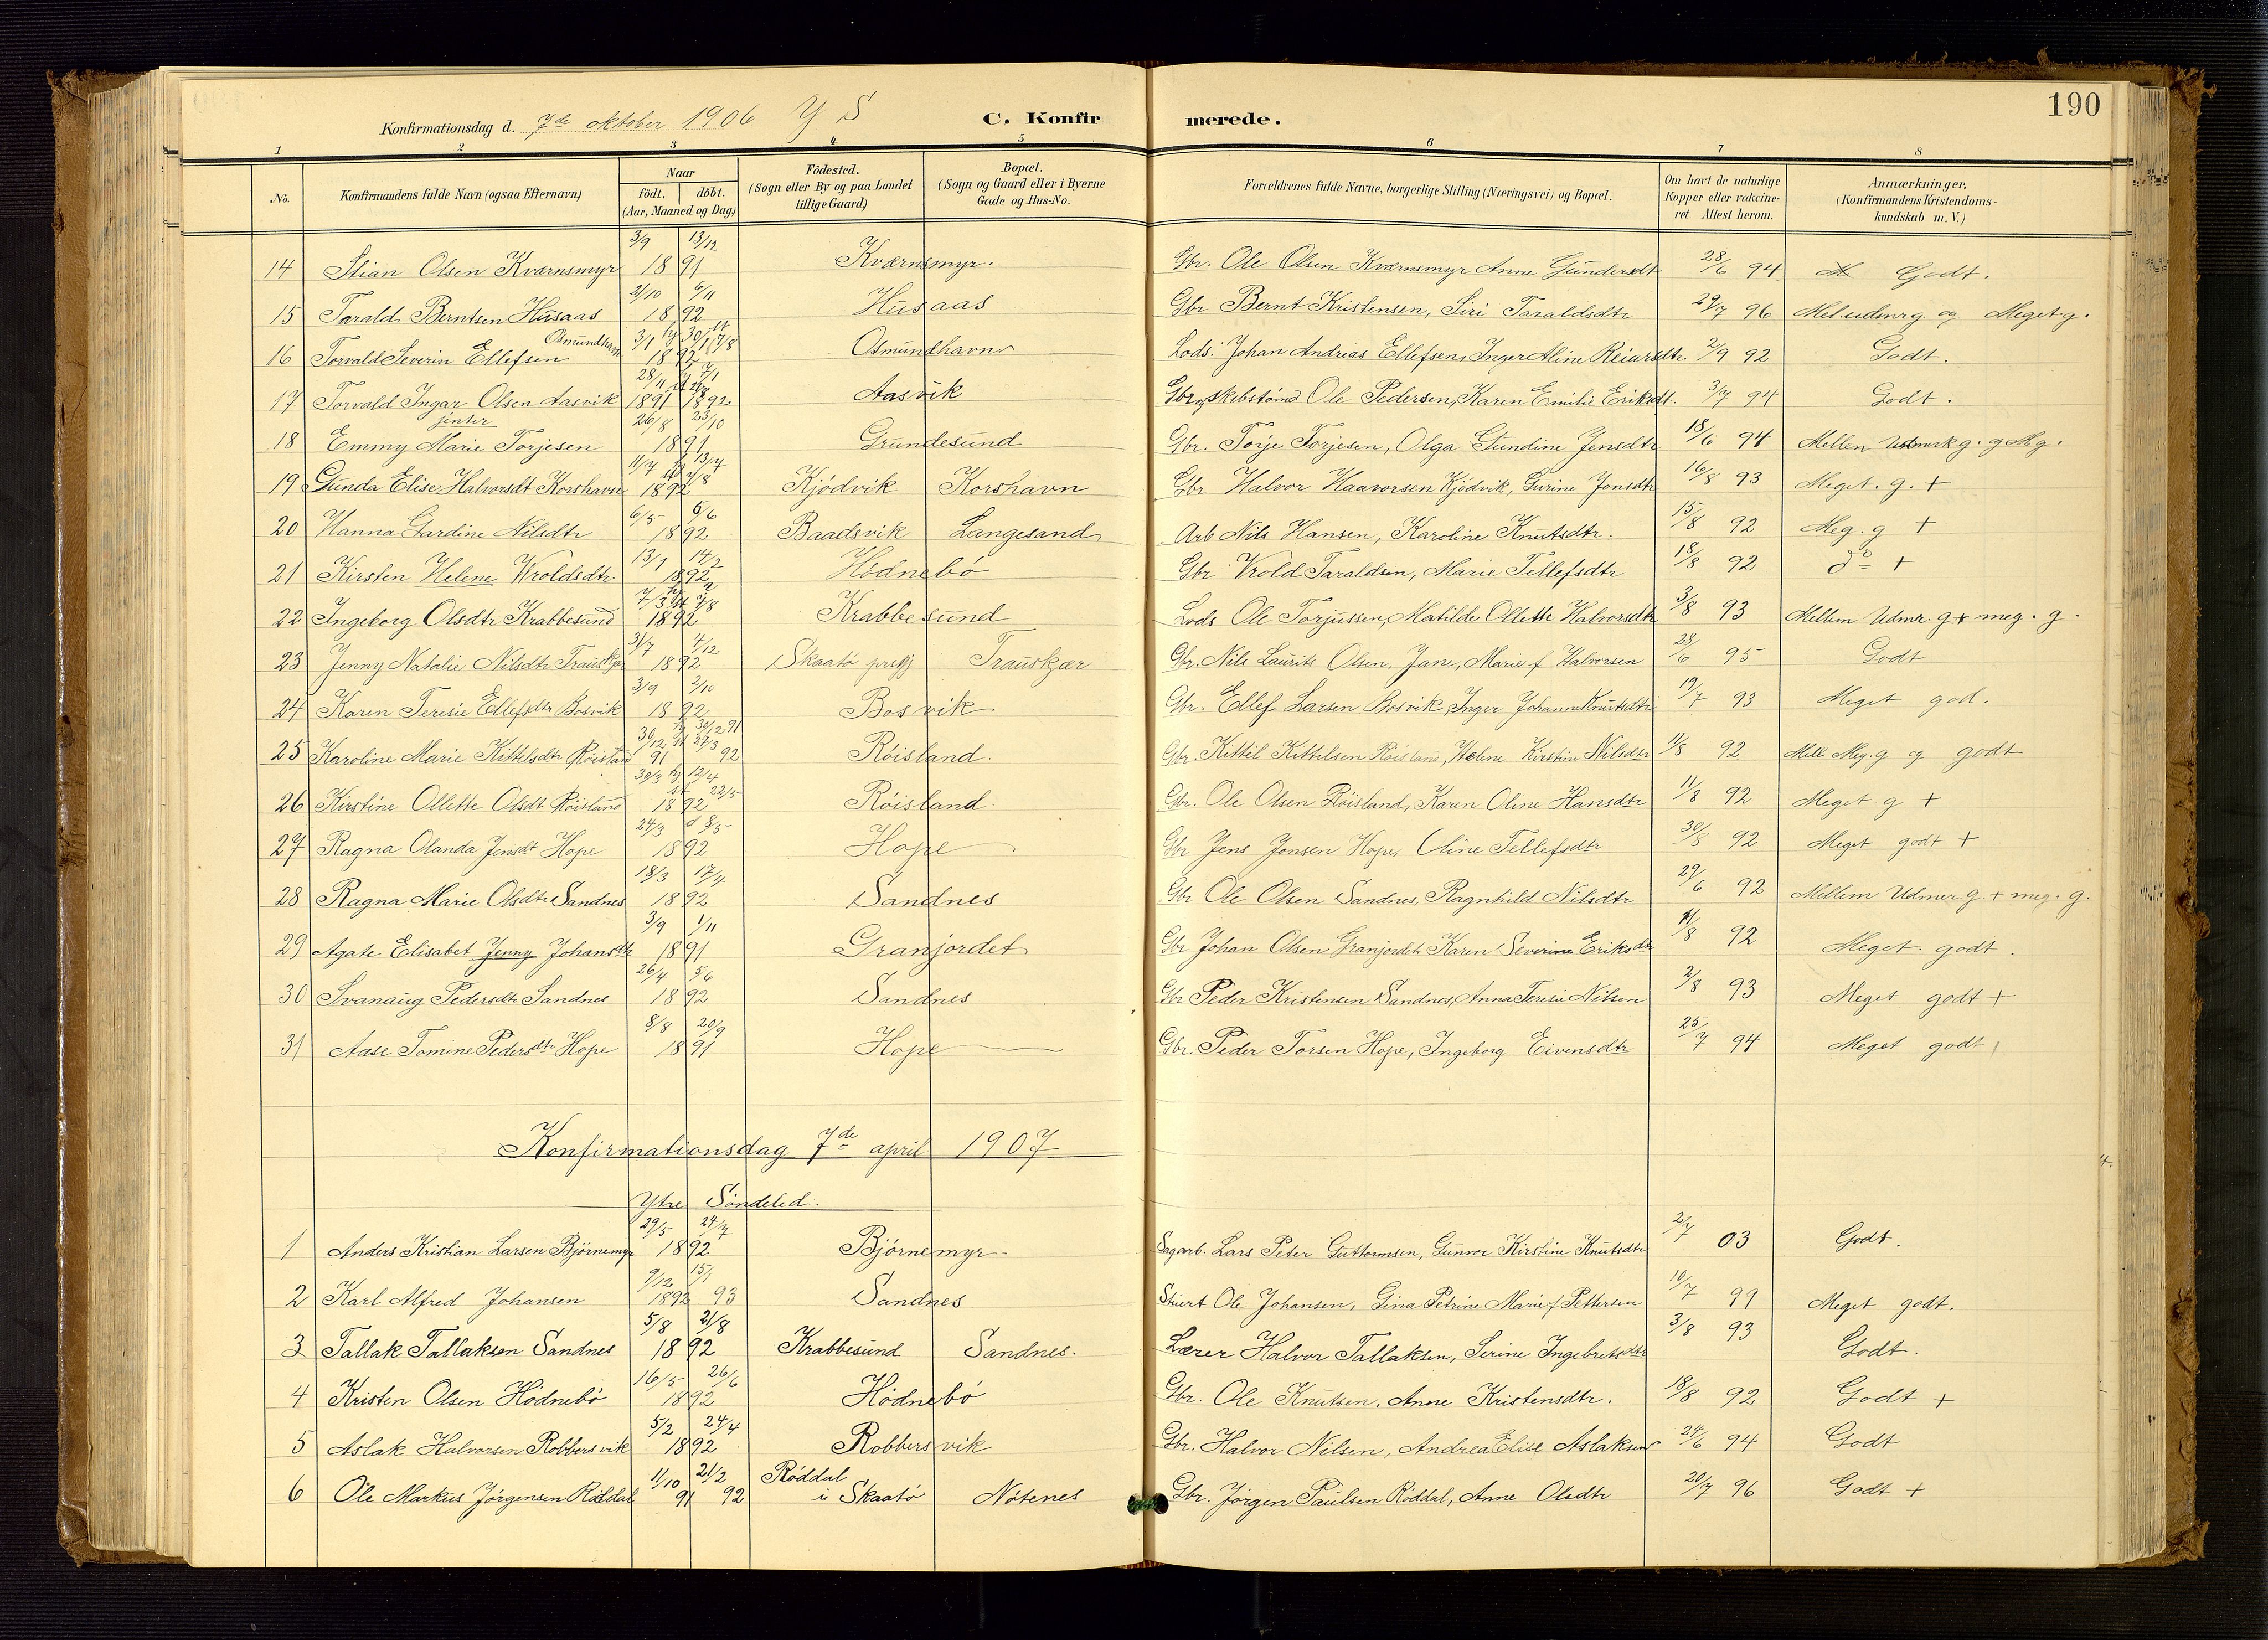 190
Konfirmationsdag d. 7de oktober 1906 Y S C. Konfirmerede.
1 2 3 4 5 6 7 8
No. Konfirmandens fulde Navn (ogsaa Efternavn) Naar født. døbt. (Aar, Maaned og Dag) Födested. (Sogn eller By og paa Landet tillige Gaard) Bopæl. (Sogn og Gaard eller i Byerne Gade og Hus-No. Forældrenes fulde Navne, borgerlige Stilling (Næringsvei) og Bopæl. Om havt de naturlige Kopper eller vakcineret. Attest herom. Anmærkninger, (Konfirmandens Kristendomskundskab m. V.)
14 Stian Olsen Kværnsmyr 3/9 13/12 1891 Kværnsmyr. Gbr. Ole Olsen Kværnsmyr Anne Gundersdt 28/6 94 Godt.
15 Tarald Berntsen Husaas 21/10 6/11 1892 Husaas Gbr Bernt Kristensen, Siri Taraldsdtr 29/7 96 Mel. udmrg og Meget g.
16 Torvald Severin Ellefsen Osmundhavn 3/1 30/1 7/8 1892 Osmundhavn Lods. Johan Andreas Ellefsen, Inger Aline Reiarsdtr. 2/9 92 Godt.
17 Torvald Ingar Olsen Aasvik 28/11 7/1 1891 1892 Aasvik Gbr og skibstømd Ole Pedersen, Karen Emilie Eriksdt. 3/7 94 Godt.
jenter
18 Emmy Marie Torjesen 26/8 23/10 1891 Grundesund Gbr. Torje Torjesen, Olga Gundine Jensdtr 18/6 94 Mellem Udmerk g. og M g.
19 Gunda Elise Halvorsdt Korshavn 11/7 13/7 7/8 1892 Kjødvik Korshavn Gbr Halvor Haavorsen Kjødvik, Gurine Jonsdtr 16/8 93 Meget. g. +
20 Hanna Gardine Nilsdtr 6/5 6/6 1892 Baadsvik Langesand Arb Nils Hansen, Karoline Knutsdtr. 15/8 92 Meg. g +
21 Kirsten Helene Wroldsdtr. 13/1 14/2 1892 Hødnebø Gbr Vrold Taraldsen, Marie Tellefsdtr 18/8 92 do +
22 Ingeborg Olsdtr Krabbesund 7/3 7/8 1892 Krabbesund Lods Ole Torjussen, Matilde Ollette Halvorsdtr 3/8 93 Mellem Udmr. g + meg. g.
23 Jenny Natalie Nilsdtr Trauskjær 31/7 4/12 1892 Skaatø prestgj Trauskær Gbr. Nils Laurits Olsen, Jane, Marie f Halvorsen 28/6 95 Godt
24 Karen Teresie Ellefsdtr Bosvik 3/9 2/10 1892 Bosvik Gbr. Ellef Larsen Bosvik, Inger Johanne Knutsdtr 19/7 93 Meget god.
25 Karoline Marie Kittelsdtr Røisland 30/12 91 30/12 91 27/3 92 Røisland. Gbr. Kittil Kittilsen Røisland, Helene Kirstine Nilsdtr 11/8 92 Mell Meg. g og godt
26 Kirstine Ollette Olsdt Røisland 30/3 12/4 22/5 1892 Røisland Gbr. Ole Olsen Røisland, Karen Oline Hansdtr 11/8 92 Meget g +
27 Ragna Olanda Jensdt Hope 24/3 8/5 1892 Hope Gbr Jens Jonsen Hope, Oline Tellefsdtr 30/8 92 Meget godt +
28 Ragna Marie Olsdtr Sandnes 18/3 17/4 1892 Sandnes Gbr Ole Olsen Sandnes, Ragnhild Nilsdtr 29/6 92 Mellem Udmer g. + meg. g.
29 Agate Elisabet Jenny Johansdtr 3/9 1/11 1891 Granjordet Gbr Johan Olsen Granjordet Karen Severine Eriksdtr 11/8 92 Meget godt.
30 Svanaug Pedersdtr Sandnes 26/4 5/6 1892 Sandnes Gbr Peder Kristensen Sandnes, Anna Teresie Nilsen 2/8 93 Meget godt +
31 Aase Tomine Pedersdtr Hope 8/8 20/9 1891 Hope Gbr. Peder Torsen Hope, Ingeborg Eivensdtr 25/7 94 Meget godt
Konfirmationsdag 7de april 1907
Ytre Søndeled.
1 Anders Kristian Larsen Bjørnemyr 29/5 24/7 1892 Bjørnemyr Sagarb. Lars Peter Guttormsen, Gunvor Kirstine Knutsdtr 2/7 03 Godt.
2 Karl Alfred Johansen 9/12 15/1 1892 93 Sandnes Stuert Ole Johansen, Gina Petrine Marie f Pettersen 10/7 99 Meget godt.
3 Tallak Tallaksen Sandnes 5/8 21/8 1892 Krabbesund Sandnes. Lærer Halvor Tallaksen, Serine Ingebretsdtr 3/8 93 Godt.
4 Kristen Olsen Hødnebø 16/5 26/6 1892 Hødnebø Gbr. Ole Knutsen, Anne Kristensdtr. 18/8 92 Godt +
5 Aslak Halvorsen Robbersvik 5/2 24/4 1892 Robbersvik Gbr. Halvor Nilsen, Andrea Elise Aslaksen 24/6 94 Godt
6 Ole Markus Jørgensen Røddal 11/10 91 21/2 92 Røddal i Skaatø Nøtenes Gbr. Jørgen Paulsen Røddal, Anne Olsdtr 20/7 96 Godt +